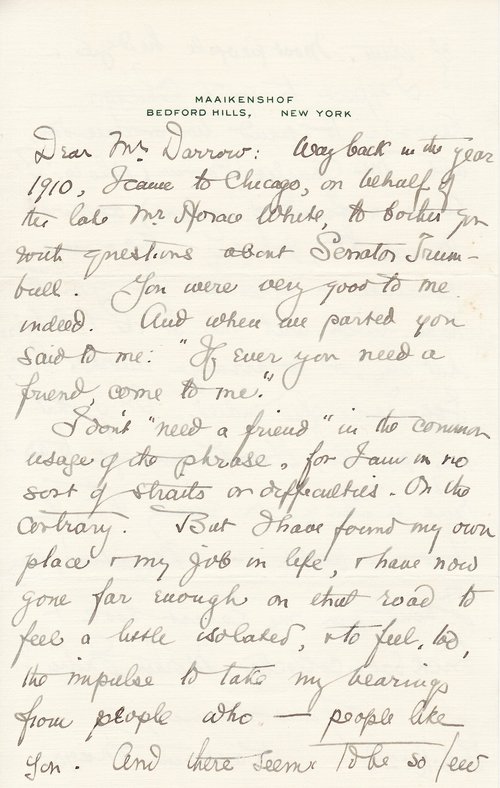 MAAIKENSHOF
BEDFORD HILLS, NEW YORK
Dear Mr. Darrow: Way back in the year
1910, I came to Chicago, on behalf of
the late Mr. Horace White, to bother you
with questions about Senator Trum-
bull. You were very good to me
indeed. And when we parted you
said to me: "If ever you need a
friend, come to me."
I don't "need a friend" in the common
usage of the phrase, for I am in no
sort of straits or difficulties. On the
contrary. But I have found my own
place & my job in life, & have now
gone far enough on that road to
feel a little isolated, & to feel, too,
the impulse to take my bearings
from people who — people like
you. And there seem to be so few